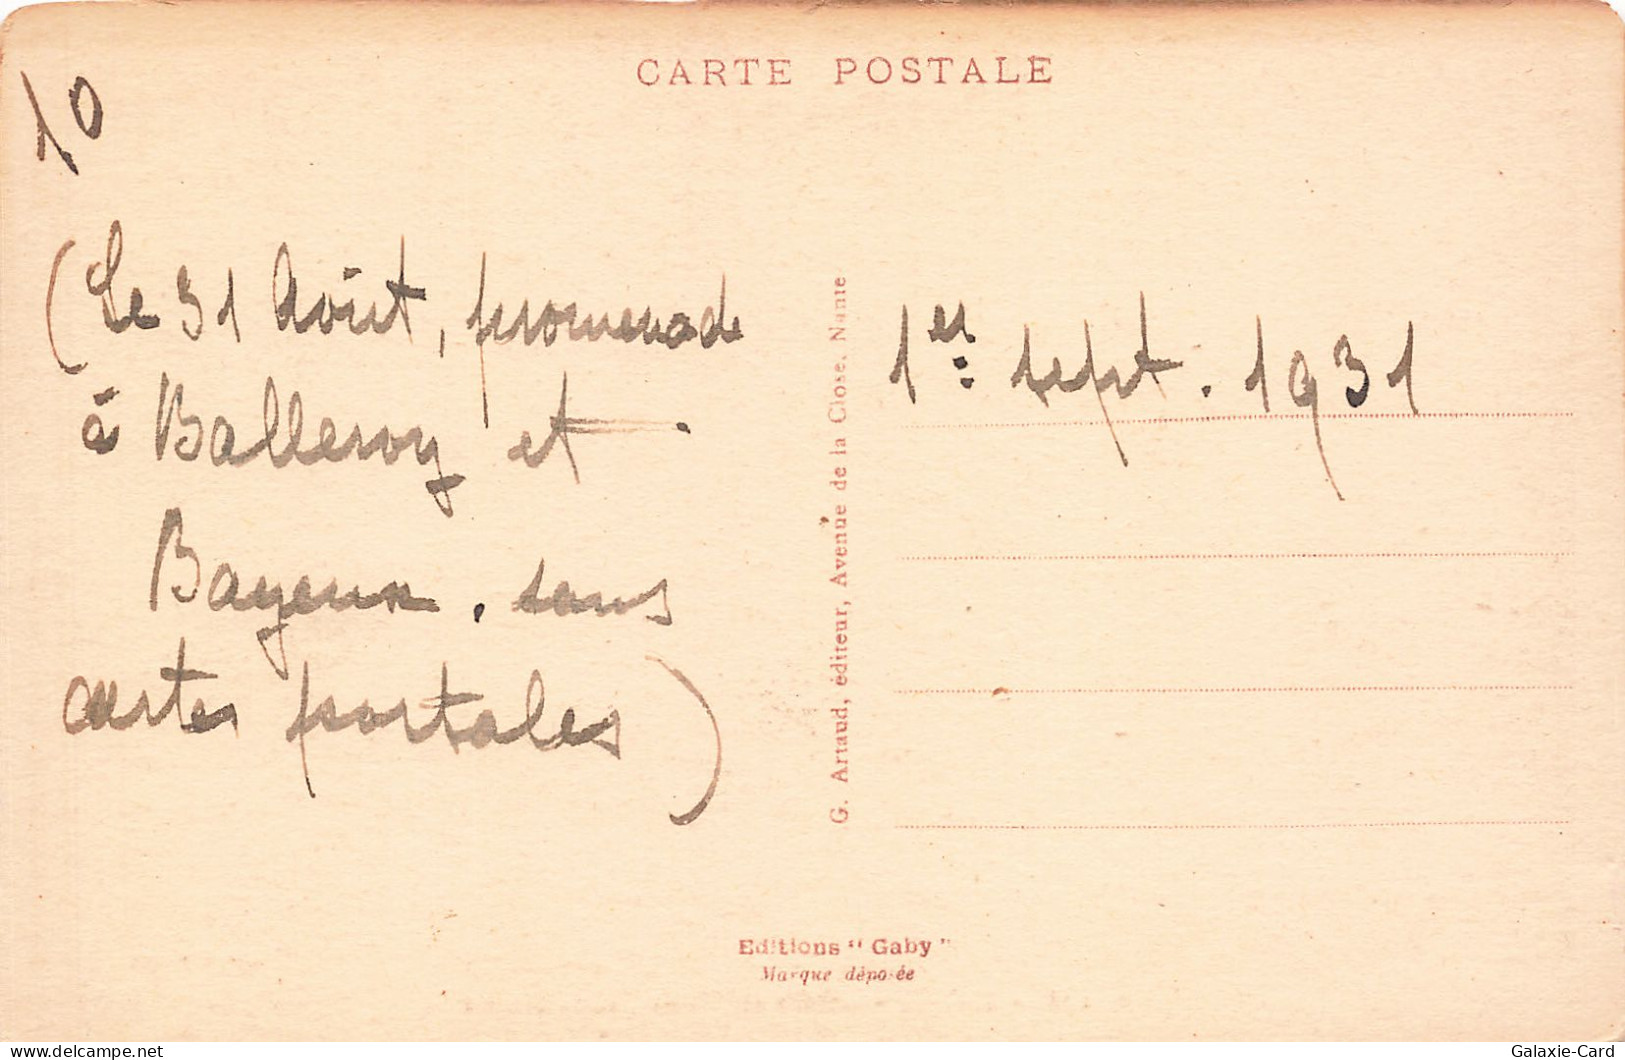 CARTE POSTALE
10
(Le 31 Août, promenade
à Balleroy et
Bayeux. sans
cartes postales)
G. Artaud, éditeur, Avenue de la Close, Nante
1er: sept. 1931
Editions "Gaby"
Marque déposée
delcampe.net
Galaxie-Card